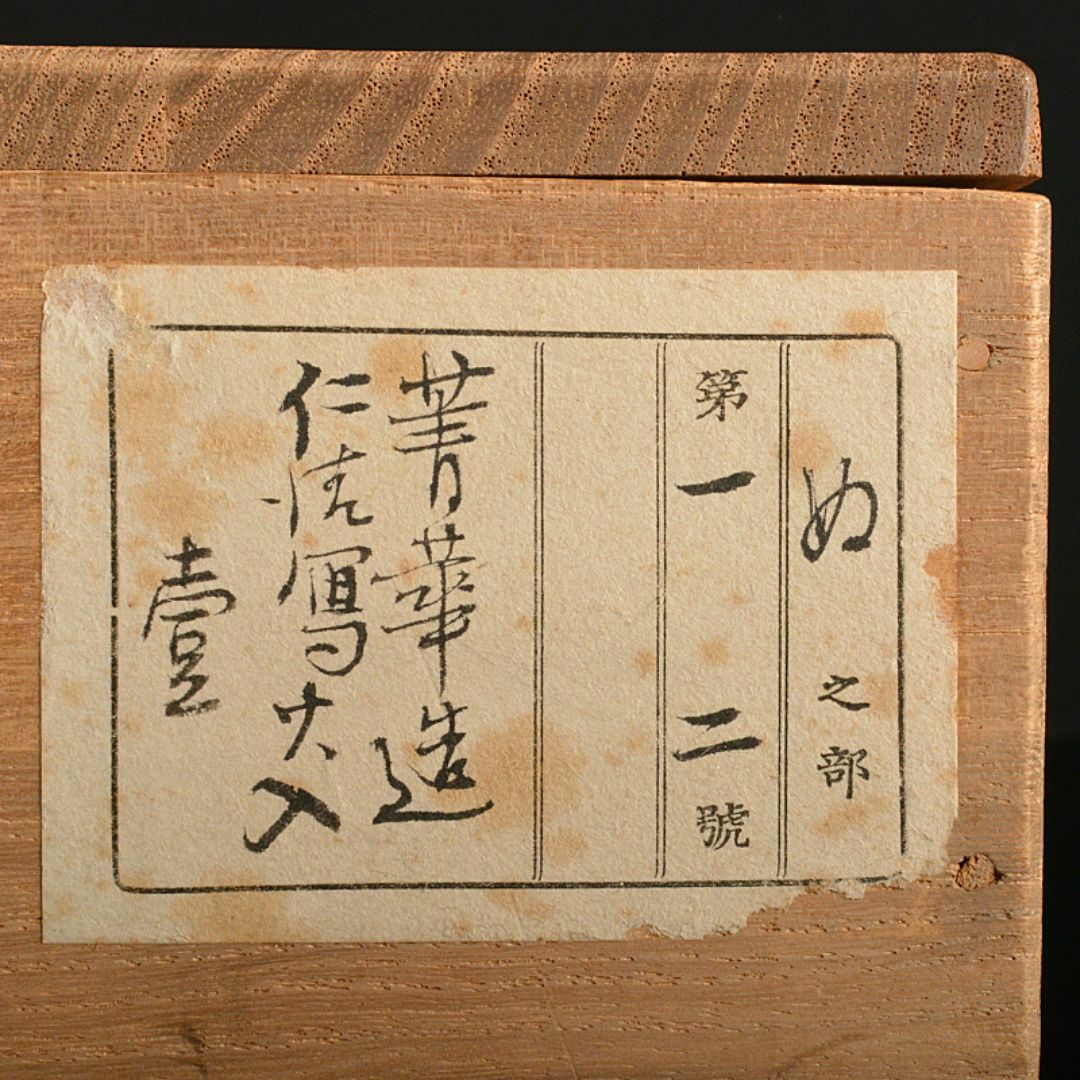 ぬ之部
第一二號
菁華造
仁清寫大入
壹